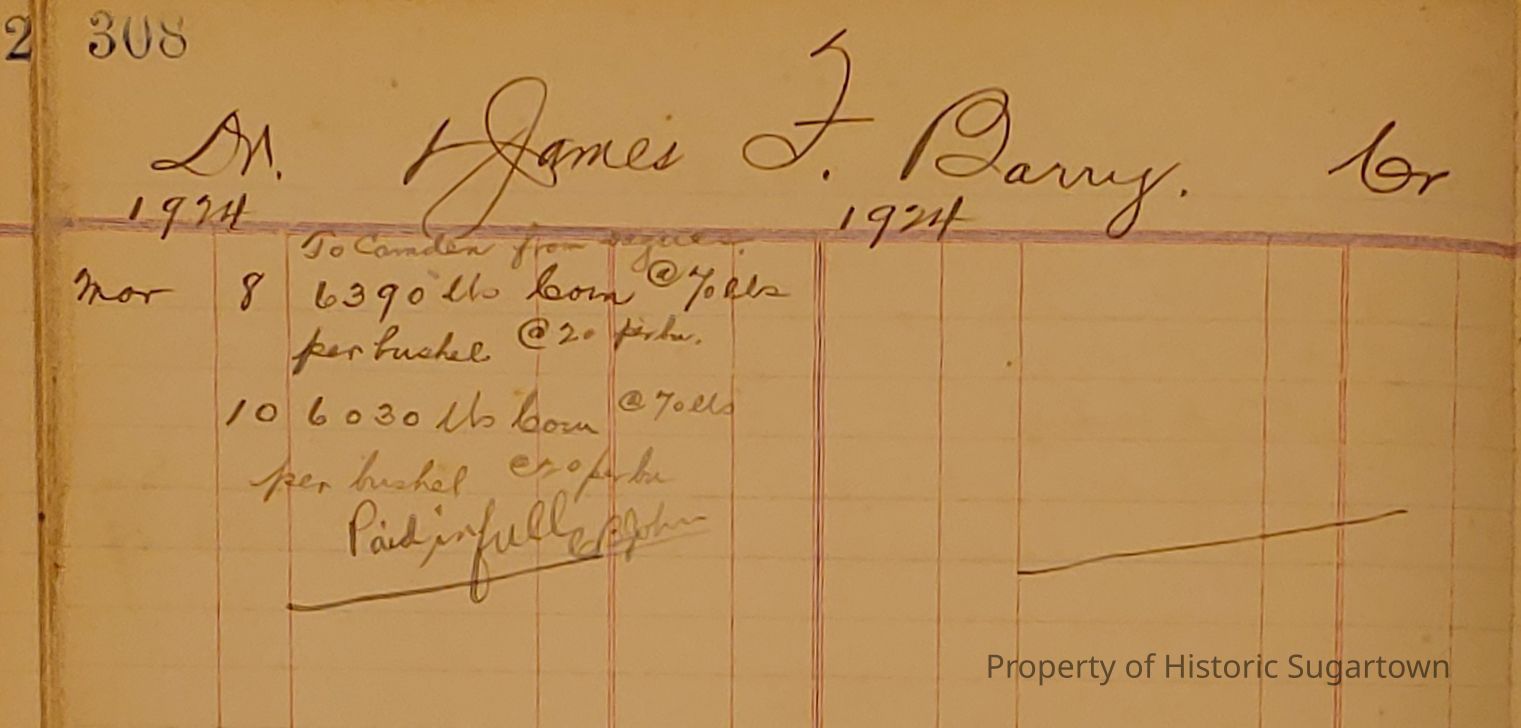 2 308
Dr. James F. Barry. Cr
1924 1924
To Camden from
Mar 8 6390 lbs Corn @ 70 lbs
per bushel @ 20 per bu.
10 6030 lbs Corn @ 70 lbs
per bushel @ 20 per bu
Paid in full John
Property of Historic Sugartown